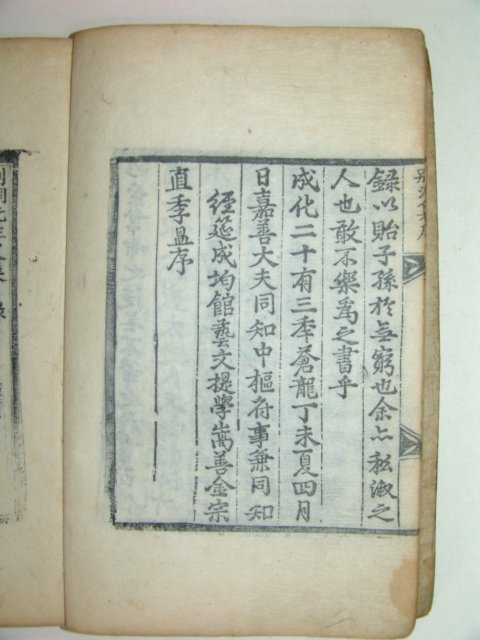 録以貽子孫於無窮也余亦私淑之
人也敢不樂爲之書乎
成化二十有三季蒼龍丁未夏四月
日嘉善大夫同知中樞府事兼同知
經筵成均館藝文提學嵩善金宗
直季昷序